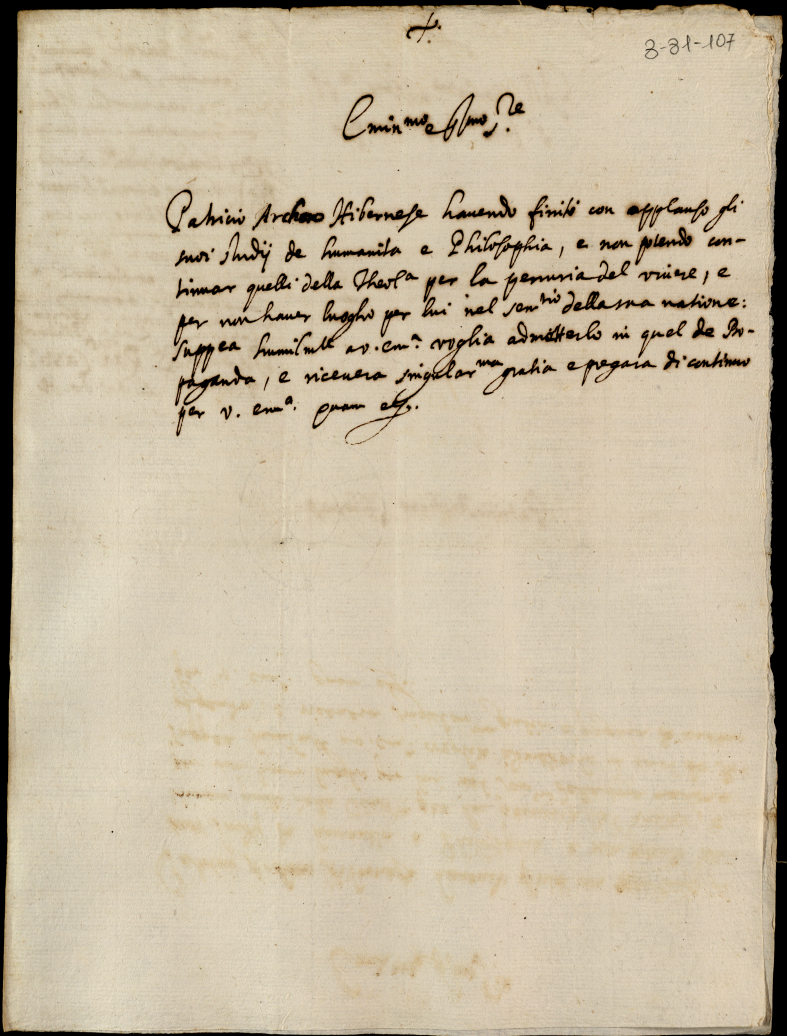 +
3-31-107
Emin.mo e R.mo S.re
Patricio Archero Hibernese havendo finito con applauso gli
suoi studij de humanita e Philosophia, e non potendo con-
tinuar quelli della Theol.a per la penuria del vivere, e
per non haver luogho per lui nel sem.rio della sua natione:
suppca humilmte a v. em.a voglia admitterlo in quel de Pro-
paganda, e ricevera singular.ma gratia e pregara di continuo
per v. em.a. quam etc.